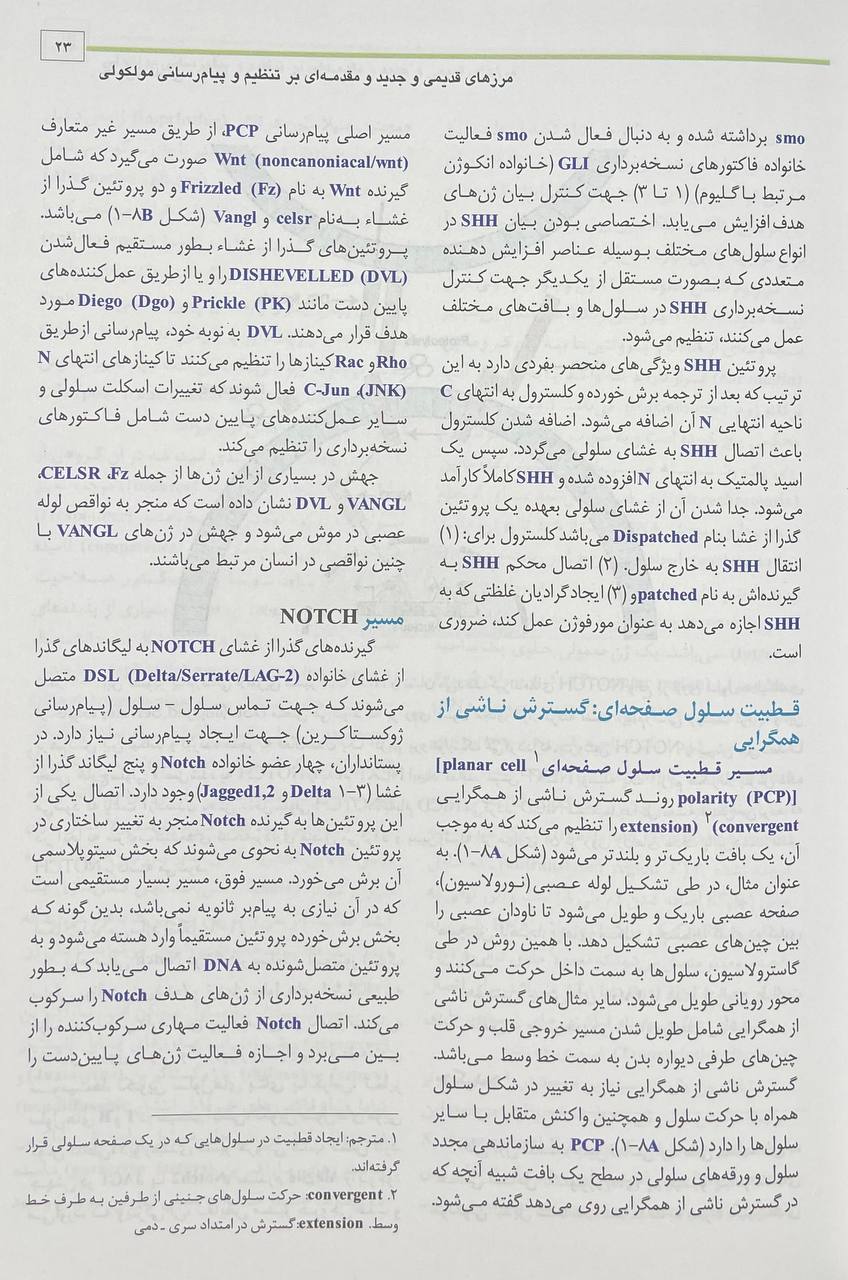 ۲۳
مرزهای قدیمی و جدید و مقدمه‌ای بر تنظیم و پیام‌رسانی مولکولی
smo برداشته شده و به دنبال فعال شدن smo فعالیت
خانواده فاکتورهای نسخه‌برداری GLI (خانواده انکوژن
مرتبط با گلیوم) (۱ تا ۳) جهت کنترل بیان ژن‌های
هدف افزایش می‌یابد. اختصاصی بودن بیان SHH در
انواع سلول‌های مختلف بوسیله عناصر افزایش دهنده
متعددی که بصورت مستقل از یکدیگر جهت کنترل
نسخه‌برداری SHH در سلول‌ها و بافت‌های مختلف
عمل می‌کنند، تنظیم می‌شود.
پروتئین SHH ویژگی‌های منحصر بفردی دارد به این
ترتیب که بعد از ترجمه برش خورده و کلسترول به انتهای C
ناحیه انتهایی N آن اضافه می‌شود. اضافه شدن کلسترول
باعث اتصال SHH به غشای سلولی می‌گردد. سپس یک
اسید پالمتیک به انتهای N افزوده شده و SHH کاملاً کارآمد
می‌شود. جدا شدن آن از غشای سلولی بعهده یک پروتئین
گذرا از غشا بنام Dispatched می‌باشد کلسترول برای: (۱)
انتقال SHH به خارج سلول. (۲) اتصال محکم SHH به
گیرنده‌اش به نام patched و (۳) ایجاد گرادیان غلظتی که به
SHH اجازه می‌دهد به عنوان مورفوژن عمل کند، ضروری
است.
قطبیت سلول صفحه‌ای: گسترش ناشی از
همگرایی
مسیر قطبیت سلول صفحه‌ای۱ [planar cell
polarity (PCP)] روند گسترش ناشی از همگرایی
(convergent۲ extension) را تنظیم می‌کند که به موجب
آن، یک بافت باریک‌تر و بلندتر می‌شود (شکل ۱-۸A). به
عنوان مثال، در طی تشکیل لوله عصبی (نورولاسیون)،
صفحه عصبی باریک و طویل می‌شود تا ناودان عصبی را
بین چین‌های عصبی تشکیل دهد. با همین روش در طی
گاسترولاسیون، سلول‌ها به سمت داخل حرکت می‌کنند و
محور رویانی طویل می‌شود. سایر مثال‌های گسترش ناشی
از همگرایی شامل طویل شدن مسیر خروجی قلب و حرکت
چین‌های طرفی دیواره بدن به سمت خط وسط می‌باشد.
گسترش ناشی از همگرایی نیاز به تغییر در شکل سلول
همراه با حرکت سلول و همچنین واکنش متقابل با سایر
سلول‌ها را دارد (شکل ۱-۸A). PCP به سازماندهی مجدد
سلول و ورقه‌های سلولی در سطح یک بافت شبیه آنچه که
در گسترش ناشی از همگرایی روی می‌دهد گفته می‌شود.
مسیر اصلی پیام‌رسانی PCP، از طریق مسیر غیر متعارف
Wnt (noncanoniacal/wnt) صورت می‌گیرد که شامل
گیرنده Wnt به نام Frizzled (Fz) و دو پروتئین گذرا از
غشاء به‌نام celsr و Vangl (شکل ۱-۸B) می‌باشد.
پروتئین‌های گذرا از غشاء بطور مستقیم فعال‌شدن
DISHEVELLED (DVL) را و یا از طریق عمل‌کننده‌های
پایین دست مانند Prickle (PK) و Diego (Dgo) مورد
هدف قرار می‌دهند. DVL به نوبه خود، پیام‌رسانی از طریق
Rho و Rac کینازها را تنظیم می‌کنند تا کینازهای انتهای N
C-Jun (JNK)، فعال شوند که تغییرات اسکلت سلولی و
سایر عمل‌کننده‌های پایین دست شامل فاکتورهای
نسخه‌برداری را تنظیم می‌کند.
جهش در بسیاری از این ژن‌ها از جمله CELSR ،Fz،
VANGL و DVL نشان داده است که منجر به نواقص لوله
عصبی در موش می‌شود و جهش در ژن‌های VANGL با
چنین نواقصی در انسان مرتبط می‌باشند.
مسیر NOTCH
گیرنده‌های گذرا از غشای NOTCH به لیگاندهای گذرا
از غشای خانواده DSL (Delta/Serrate/LAG-2) متصل
می‌شوند که جهت تماس سلول – سلول (پیام‌رسانی
ژوکستاکرین) جهت ایجاد پیام‌رسانی نیاز دارد. در
پستانداران، چهار عضو خانواده Notch و پنج لیگاند گذرا از
غشا (Delta ۱-۳ و Jagged1,2) وجود دارد. اتصال یکی از
این پروتئین‌ها به گیرنده Notch منجر به تغییر ساختاری در
پروتئین Notch به نحوی می‌شوند که بخش سیتوپلاسمی
آن برش می‌خورد. مسیر فوق، مسیر بسیار مستقیمی است
که در آن نیازی به پیام‌بر ثانویه نمی‌باشد، بدین گونه که
بخش برش‌خورده پروتئین مستقیماً وارد هسته می‌شود و به
پروتئین متصل‌شونده به DNA اتصال می‌یابد که بطور
طبیعی نسخه‌برداری از ژن‌های هدف Notch را سرکوب
می‌کند. اتصال Notch فعالیت مهاری سرکوب‌کننده را از
بین می‌برد و اجازه فعالیت ژن‌های پایین‌دست را
۱. مترجم: ایجاد قطبیت در سلول‌هایی که در یک صفحه سلولی قرار
گرفته‌اند.
۲. convergent: حرکت سلول‌های جنینی از طرفین به طرف خط
وسط. extension: گسترش در امتداد سری - دمی